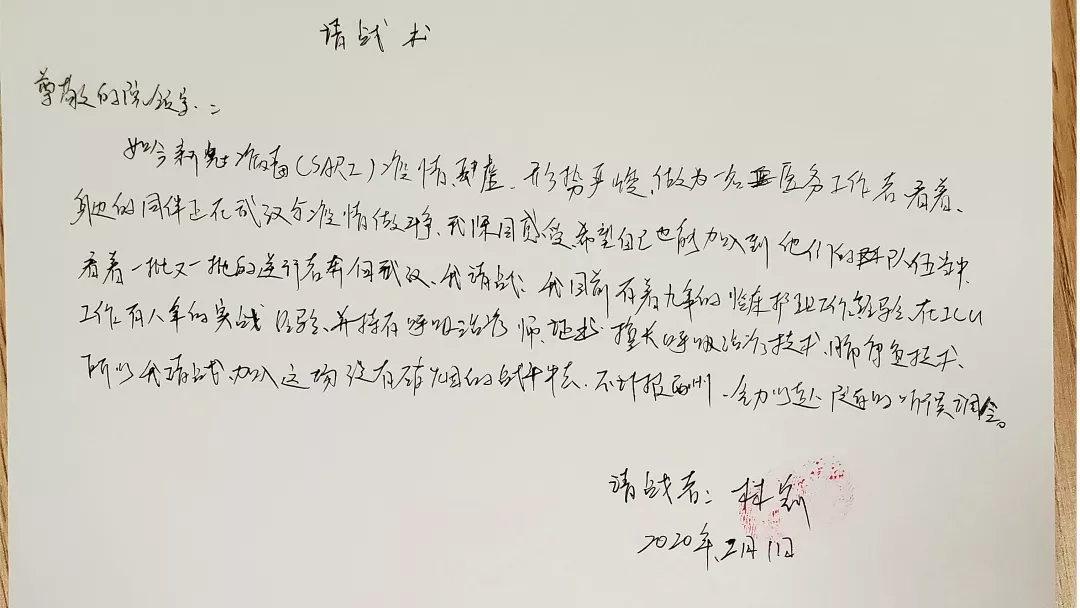 请战术
尊敬的院领导：
如今新冠病毒(SARI)疫情肆虐，形势严峻，做为一名医务工作者看着
身边的同伴正在武汉与疫情做斗争，我深同感受，希望自己也能加入到他们的队伍当中，
看着一批又一批的逆行者奔向武汉，我请战，我目前有着九年的临床护理工作经验，在ICU
工作有八年的实战经验，并持有呼吸治疗师证书，擅长呼吸治疗技术，肺康复技术，
所以我请战，加入这场没有硝烟的战争中去，不计报酬，全力以赴，院部的听候调令。
请战者：林
2020年2月11日